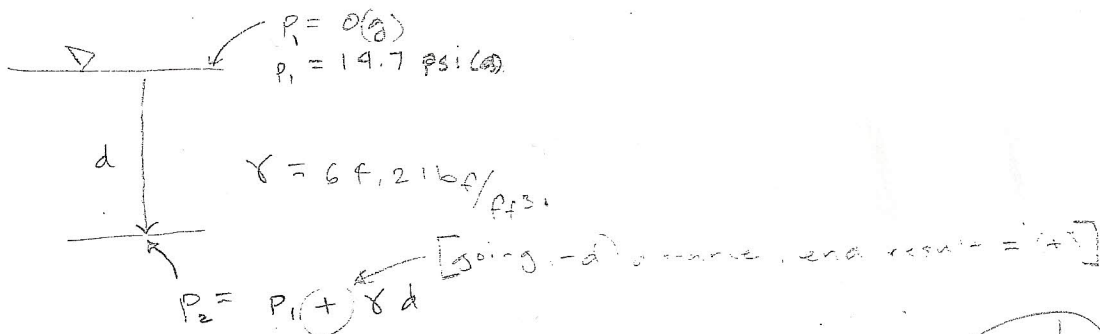 P₁ = 0(g)
P₁ = 14.7 psi(a)
d
γ = 64.2 lbf/ft³.
[going -d end result = (+)]
P₂ = P₁ + γ d